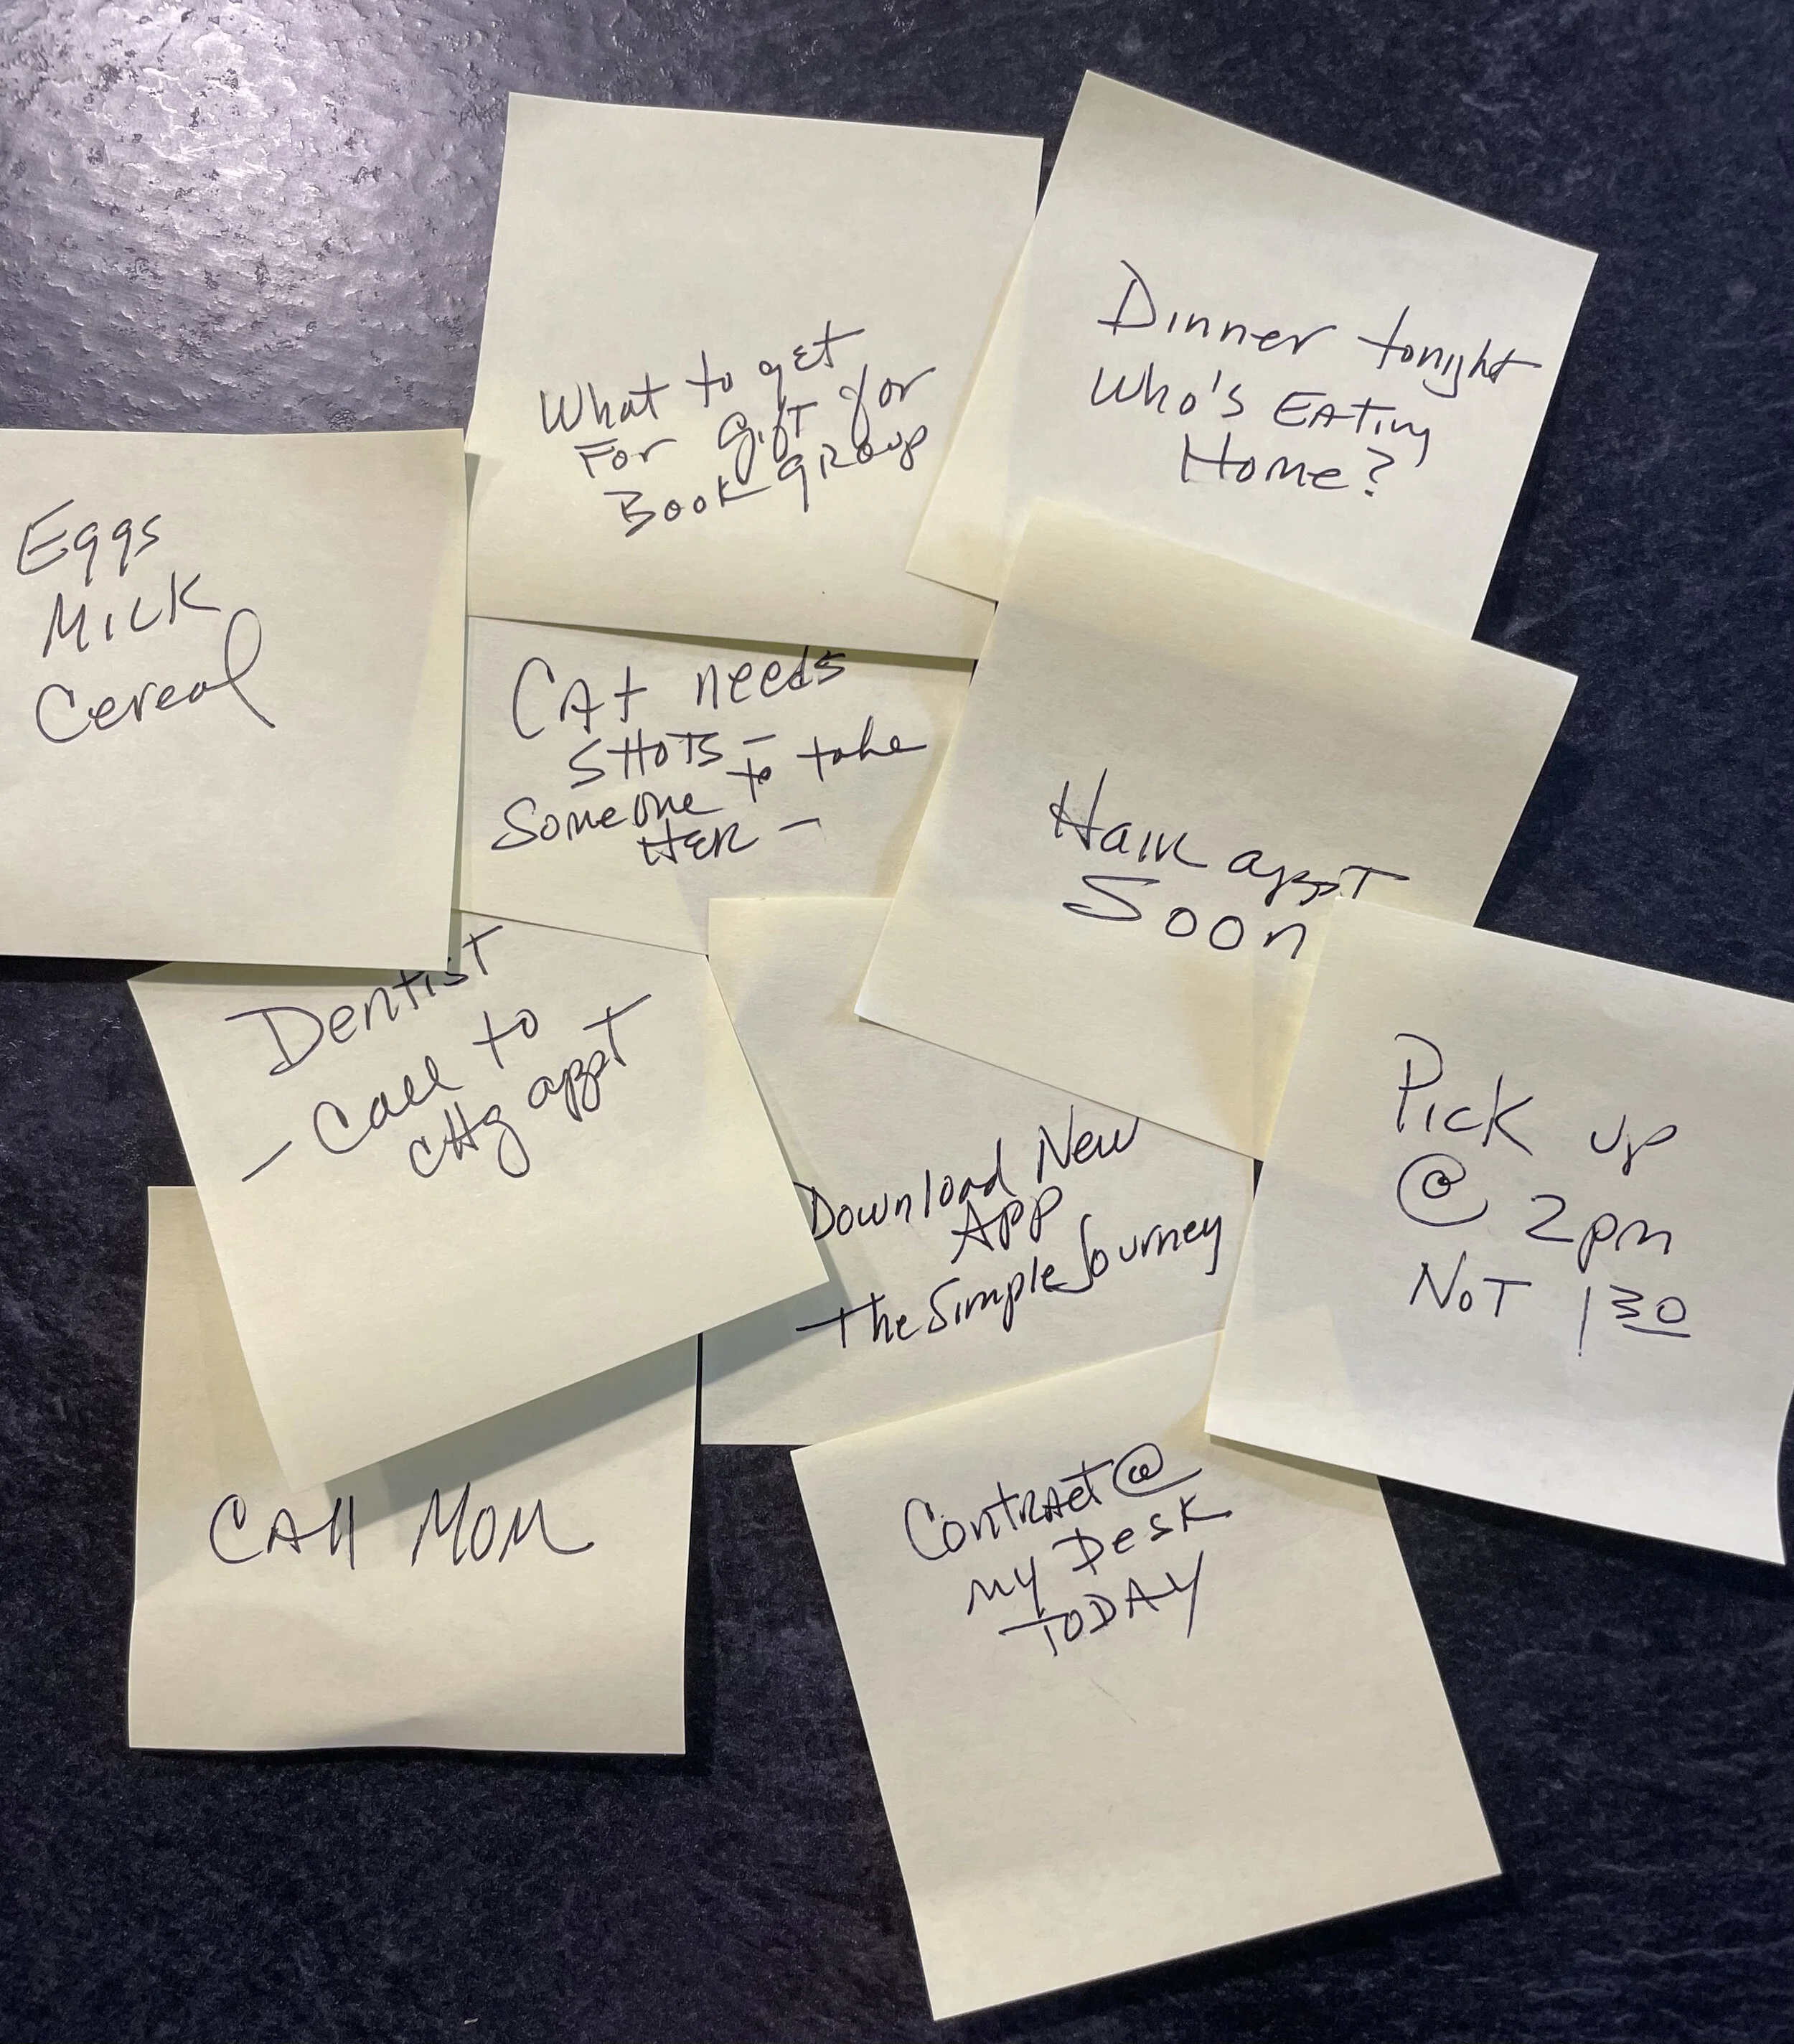 What to get
For gift for
Book group
Dinner tonight
Who's Eating
Home?
Eggs
Milk
Cereal
CAt needs
SHOTS –
Someone to take
HER –
Hair appt
Soon
Dentist
– Call to
CHg appt
Download New
App
The Simple Journey
Pick up
@ 2pm
NOT 130
CAll Mom
Contract @
my Desk
TODAY